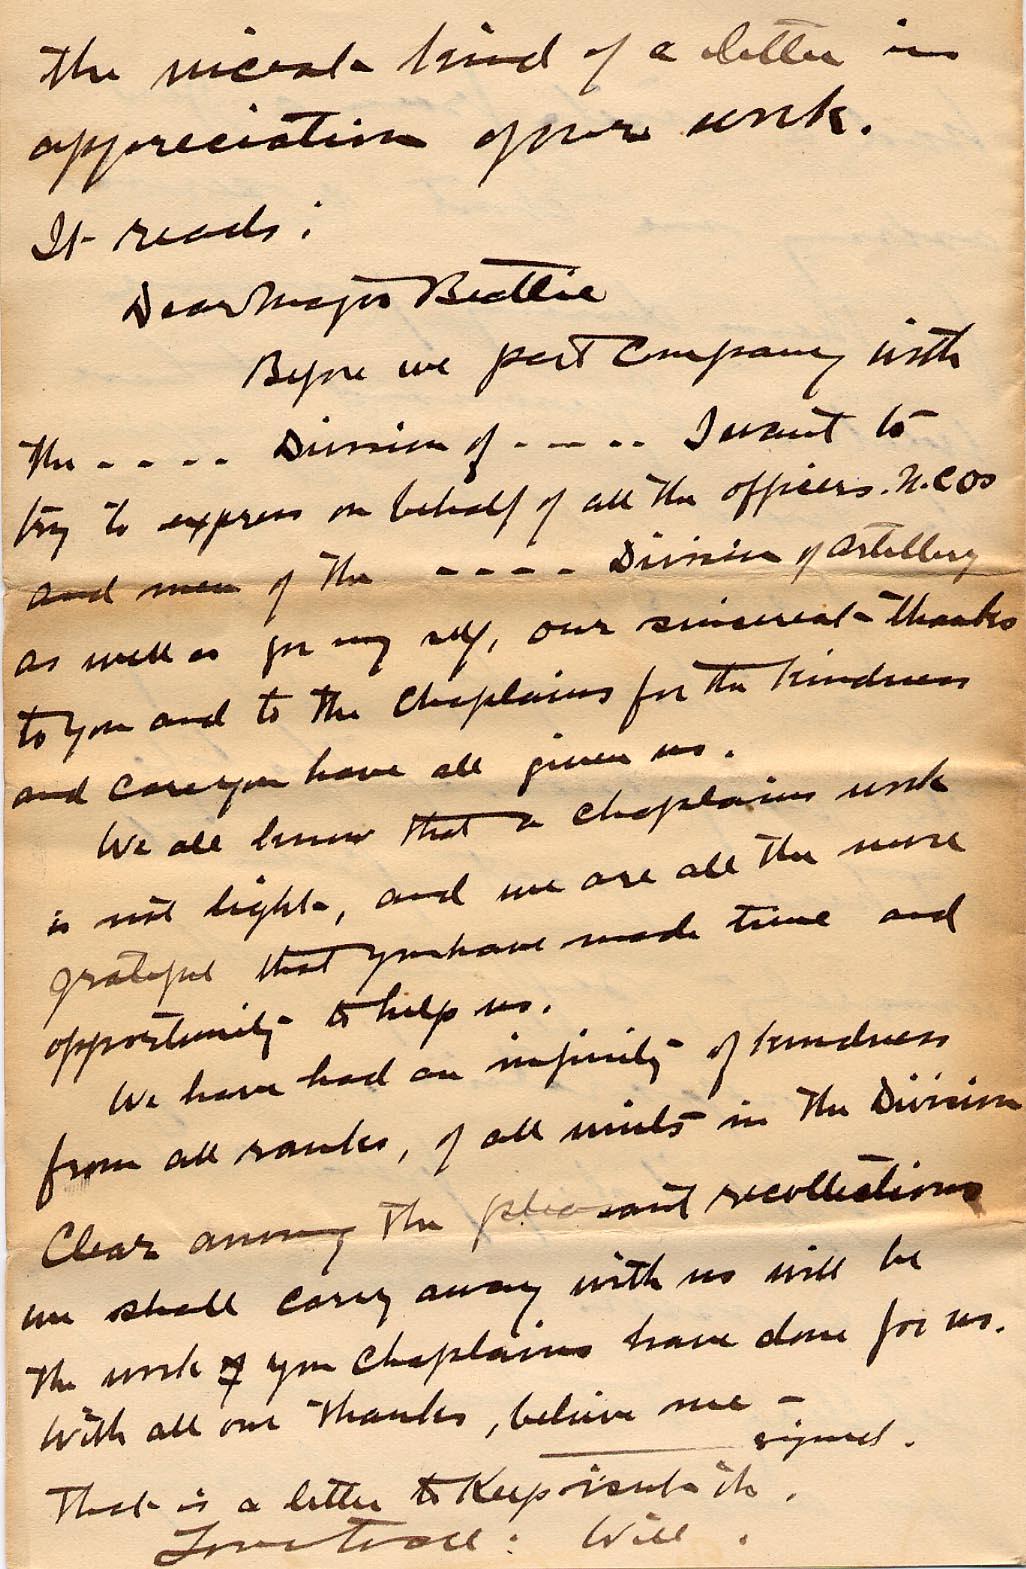 the nicest kind of a letter in
appreciation of our work.
It reads:
Dear Major Beattie
Before we part Company with
the - - - - Division of - - - - - I want to
try to express on behalf of all the officers. N.COs
and men of the - - - - Division of Artillery
as well as for my self, our sincerest thanks
to you and to the Chaplains for the kindness
and care you have all given us.
We all know that a Chaplains work
is not light, and we are all the more
grateful that you have made time and
opportunity to help us.
We have had an infinity of kindness
from all ranks, of all units in the Division
Clear among the pleasant recollections
we shall carry away with us will be
the work of you Chaplains have done for us.
With all our thanks, believe me -
signed.
That is a letter to Keep isn't it.
Love to all: Will.